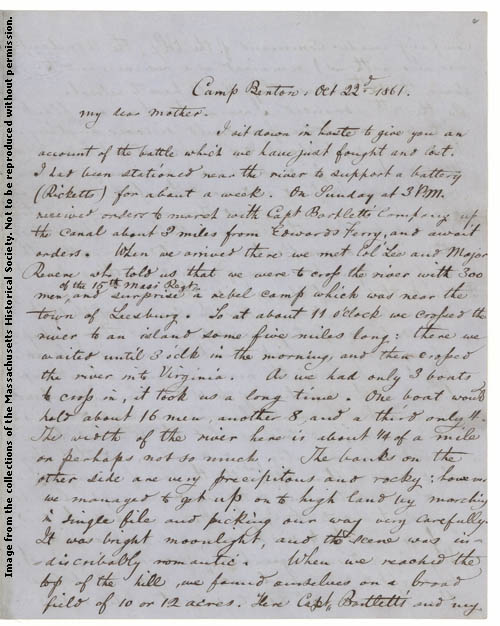 Camp Benton. Oct 22d. 1861.
My dear Mother.
I sit down in haste to give you an
account of the battle which we have just fought and lost.
I had been stationed near the river to support a battery
(Ricketts) for about a week. On Sunday at 3 P.M.
received orders to march with Capt Bartletts Company up
the canal about 3 miles from Edwards Ferry, and await
orders. When we arrived there we met Col Lee and Major
Revere who told us that we were to cross the river with 300
of the 15th Mass Regt.
men, and surprise a rebel camp which was near the
town of Leesburg. So at about 11 o'clock we crossed the
river to an island some five miles long: there we
waited until 3 oclk in the morning, and then crossed
the river into Virginia. As we had only 3 boats
to cross in, it took us a long time. One boat would
hold about 16 men, another 8, and a third only 4.
The width of the river here is about 1/4 of a mile
or perhaps not so much. The banks on the
other side are very precipitous and rocky: however
we managed to get up on to high land by marching
in single file and picking our way very carefully.
It was bright moonlight, and the scene was in-
discribably romantic. When we reached the
top of the hill, we found ourselves on a broad
field of 10 or 12 acres. Here Capt Bartlett's and my
Image from the collections of the Massachusetts Historical Society. Not to be reproduced without permission.